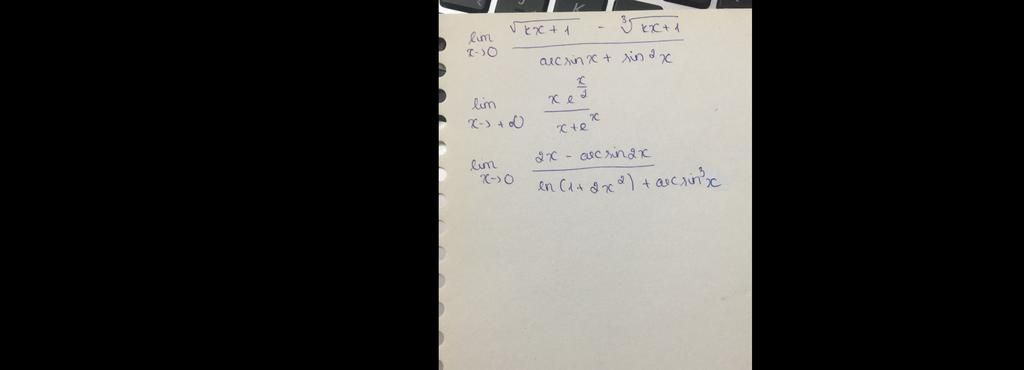 lim x→0 (√(kx+1) - ∛(kx+1)) / (arcsin x + sin 2x)
lim x→+∞ (x e^(x/2)) / (x+e^x)
lim x→0 (2x - arcsin 2x) / (ln(1+2x²) + arcsin³x)